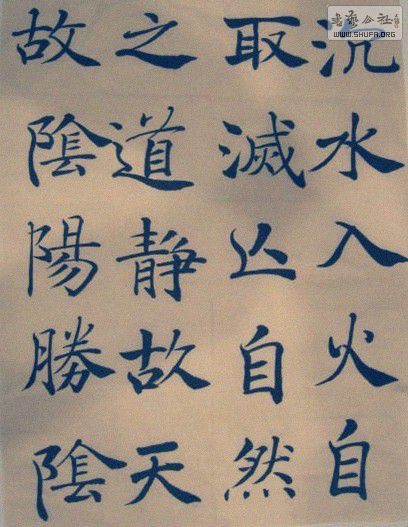 沉水入火自
取滅亾自然
之道靜故天
故陰陽勝陰
書藝公社
WWW.SHUFA.ORG